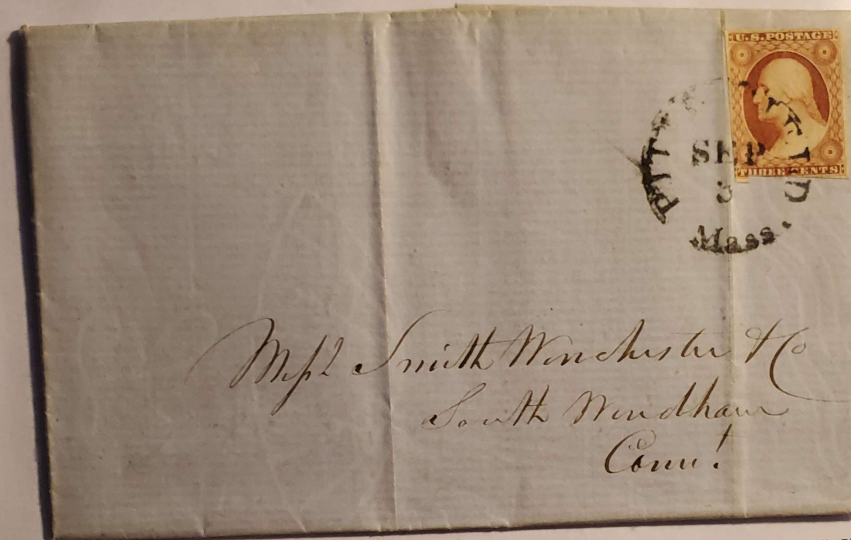 U.S. POSTAGE
THREE CENTS
PITTSFIELD
SEP
3
Mass.
Messrs Smith Winchester & Co
South Windham
Conn.